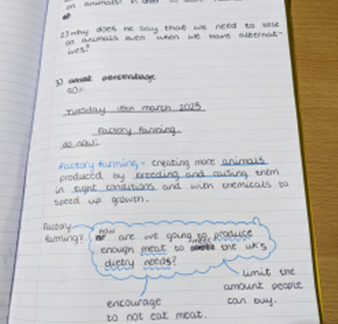 on animals?
2) why does he say that we need to test
on animals even when we have alternat-
ives?
3)
40%
Tuesday 18th march 2025
Factory farming
do now:
Factory farming - creating more animals
produced by breeding and raising them
in tight conditions and with chemicals to
speed up growth.
Factory
farming?
how are we going to produce
enough meat to meet the UK's
dietry needs?
limit the
amount people
can buy.
encourage
to not eat meat.